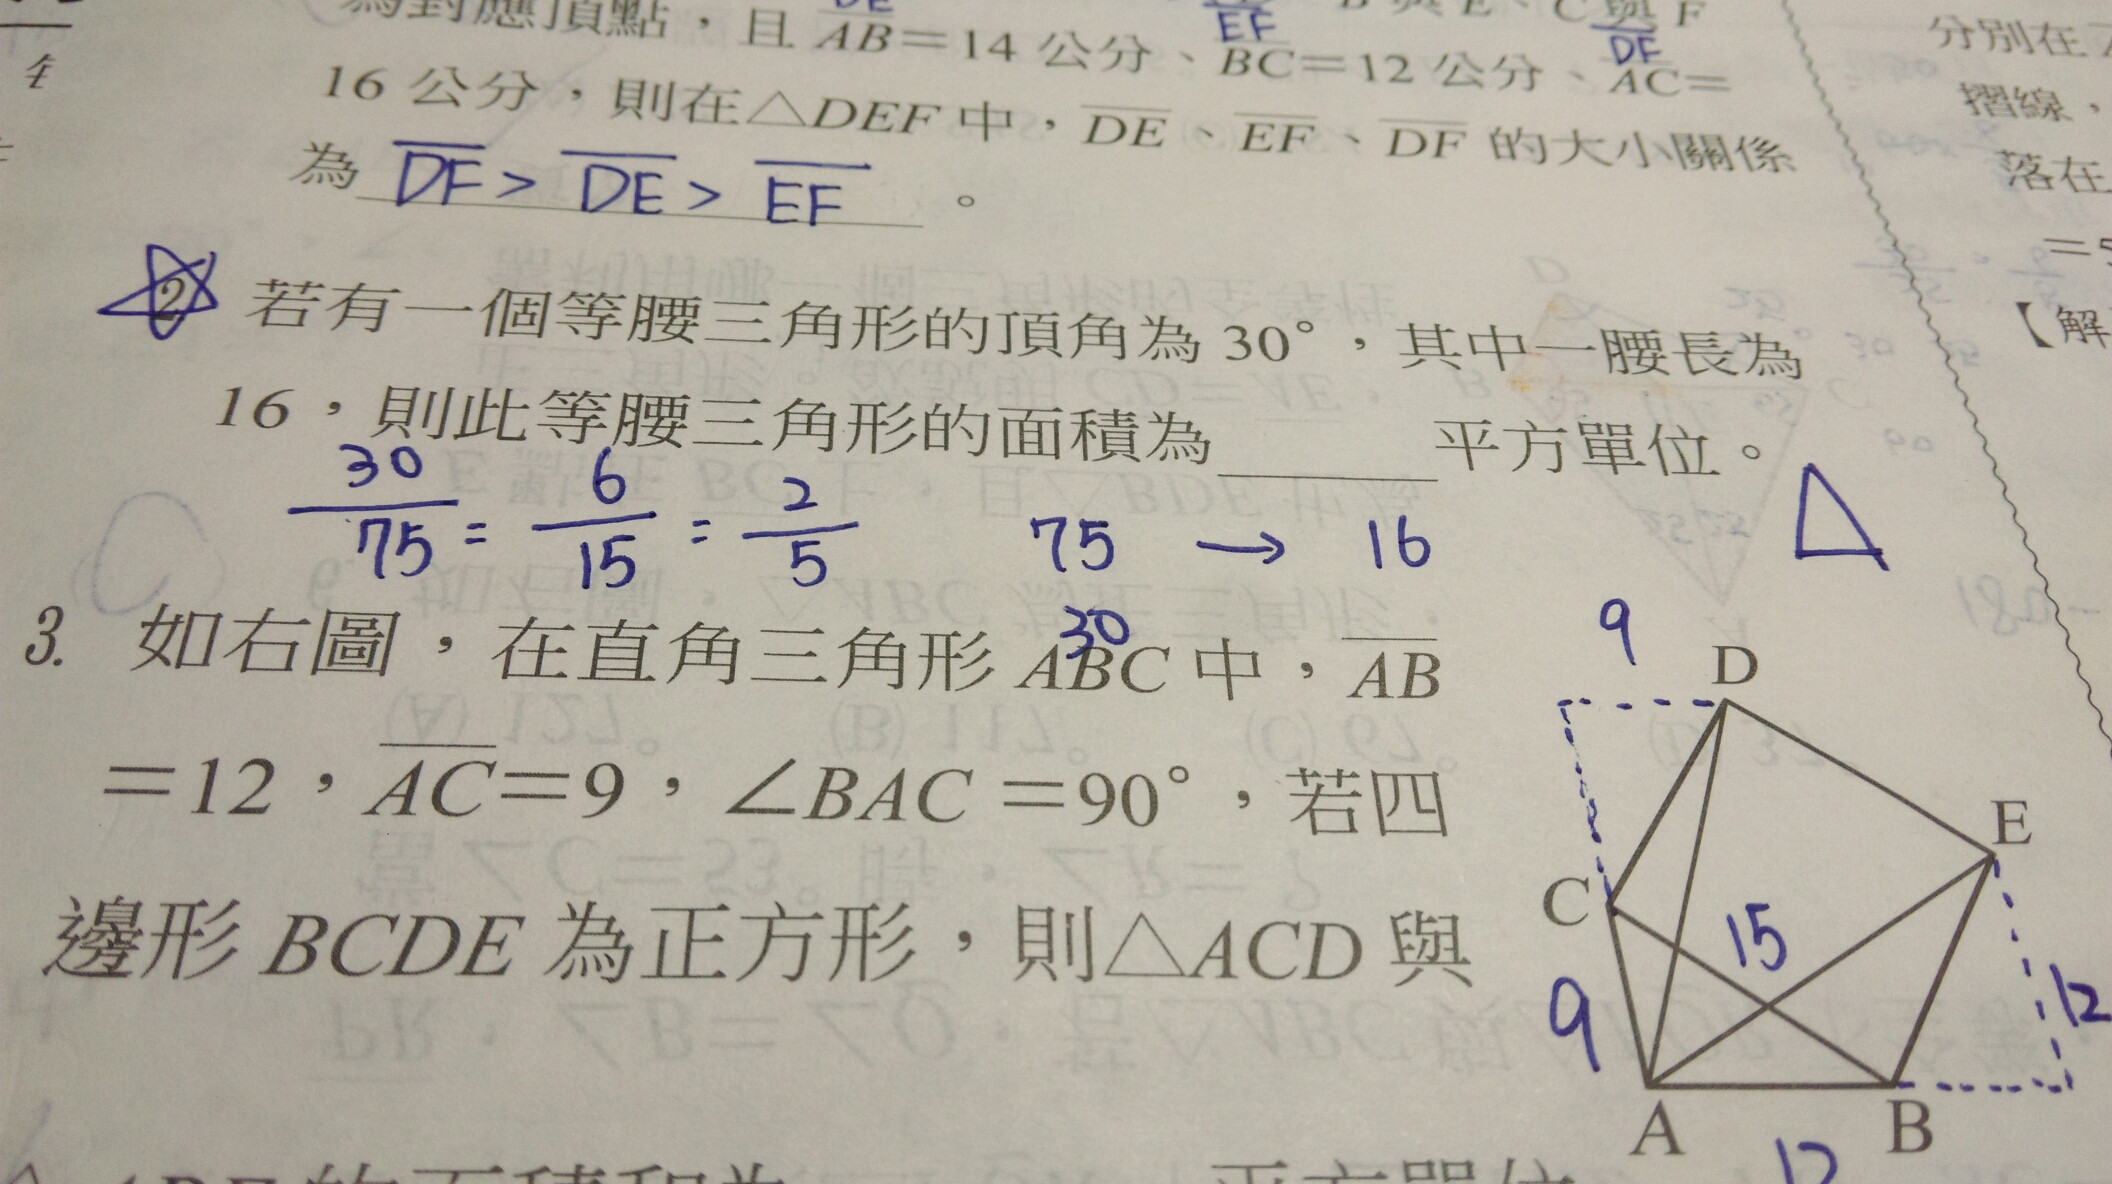 為對應頂點，且 AB=14 公分、BC=12 公分、AC=
DE
EF
DF
16 公分，則在△DEF 中，DE、EF、DF 的大小關係
為 DF > DE > EF 。
2 若有一個等腰三角形的頂角為 30°，其中一腰長為
16，則此等腰三角形的面積為 平方單位。
30/75 = 6/15 = 2/5 75 → 16
30
3. 如右圖，在直角三角形 ABC 中，AB
=12，AC=9，∠BAC=90°，若四
邊形 BCDE 為正方形，則△ACD 與
9
D
E
C
15
9
12
A
B
12
分別在
摺線，
落在
=5
【解